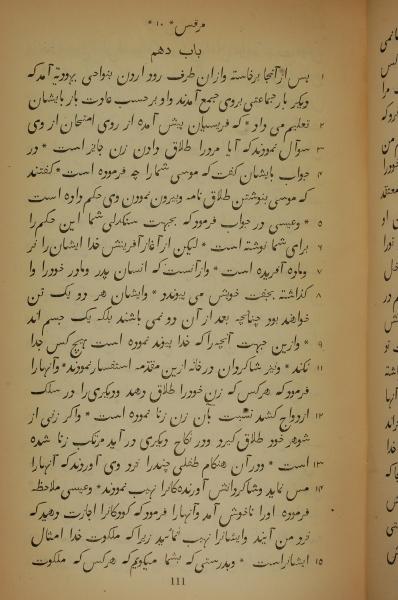 مرقس * ۱۰ *
باب دهم
۱ پس از آنجا برخاسته و از آن طرف رود اردن بنواحی یهودیه آمد که
دیگر بار جماعتی بروی جمع آمدند و او بر حسب عادت باز بایشان
۲ تعلیم می داد * که فریسیان پیش آمده از روی امتحان از وی
۳ سوآل نمودند که آیا مرد را طلاق دادن زن جایز است * در
۴ جواب بایشان گفت که موسی شما را چه فرموده است * گفتند
که موسی بنوشتن طلاق نامه و بیرون نمودن وی حکم داده است
۵ * و عیسی در جواب فرمود که بجهت سنگدلی شما این حکم را
۶ برای شما نوشته است * لیکن از آغاز آفرینش خدا ایشان را نر
۷ و ماده آفریده است * و از آنست که انسان پدر و مادر خود را وا
۸ گذاشته بجفت خویش می پیوندد * و ایشان هر دو یک تن
خواهند بود چنانچه بعد از آن دو نمی باشند بلکه یک جسم اند
۹ * و ازین جهت آنچه را که خدا پیوند نموده است هیچ کس جدا
۱۱ نکند * و نیز شاگردان در خانه ازین مقدمه استفسار نمودند * و آنها را
فرمود که هر کس که زن خود را طلاق دهد و دیگری را در سلک
۱۲ ازدواج کشد نسبت بآن زن زنا نموده است * و اگر زنی از
شوهر خود طلاق گیرد و در نکاح دیگری در آید مرتکب زنا شده
۱۳ است * و در آن هنگام طفلی چند را نزد وی آوردند که آنها را
۱۴ مس نماید و شاگردانش آورنده کانرا نهیب نمودند * و عیسی ملاحظه
فرموده او را ناخوش آمد و آنها را فرمود که کودکانرا اجازت دهید که
نزد من آیند و ایشانرا نهیب ننمائید زیرا که ملکوت خدا امثال
۱۵ ایشانراست * و بدرستی که بشما میگویم که هر کس که ملکوت
111